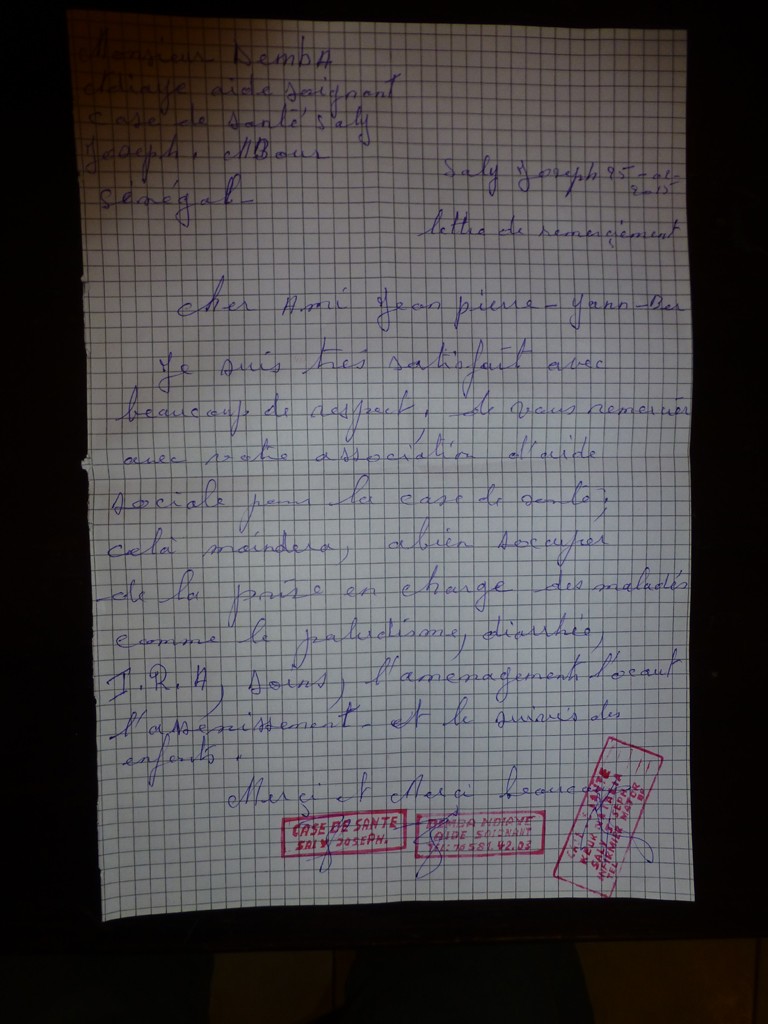 Monsieur DembA
Ndiaye aide soignant
case de santé Saly
Joseph. MBour
Sénégal-
Saly Joseph 25-01-
2015
lettre de remerciement
cher Ami Jean pierre-Yann-Ber
Je suis très satisfait avec
beaucoup de respect, de vous remercier
avec votre association d'aide
sociale pour la case de santé;
celà maindera, abien socuper
de la prise en charge des maladés
comme le paludisme, diarrhée,
I.R.A, soins, l'amenagement l'ocaut
l'assenissement- et le suivis des
enfants.
Merçi et Merci beaucoup
CASE DE SANTE
SALY JOSEPH.
DEMBA NDIAYE
AIDE SOIGNANT
TEL: 70 581.42.03
SANTE
SALY JOSEPH
INFIRMIER
TEL